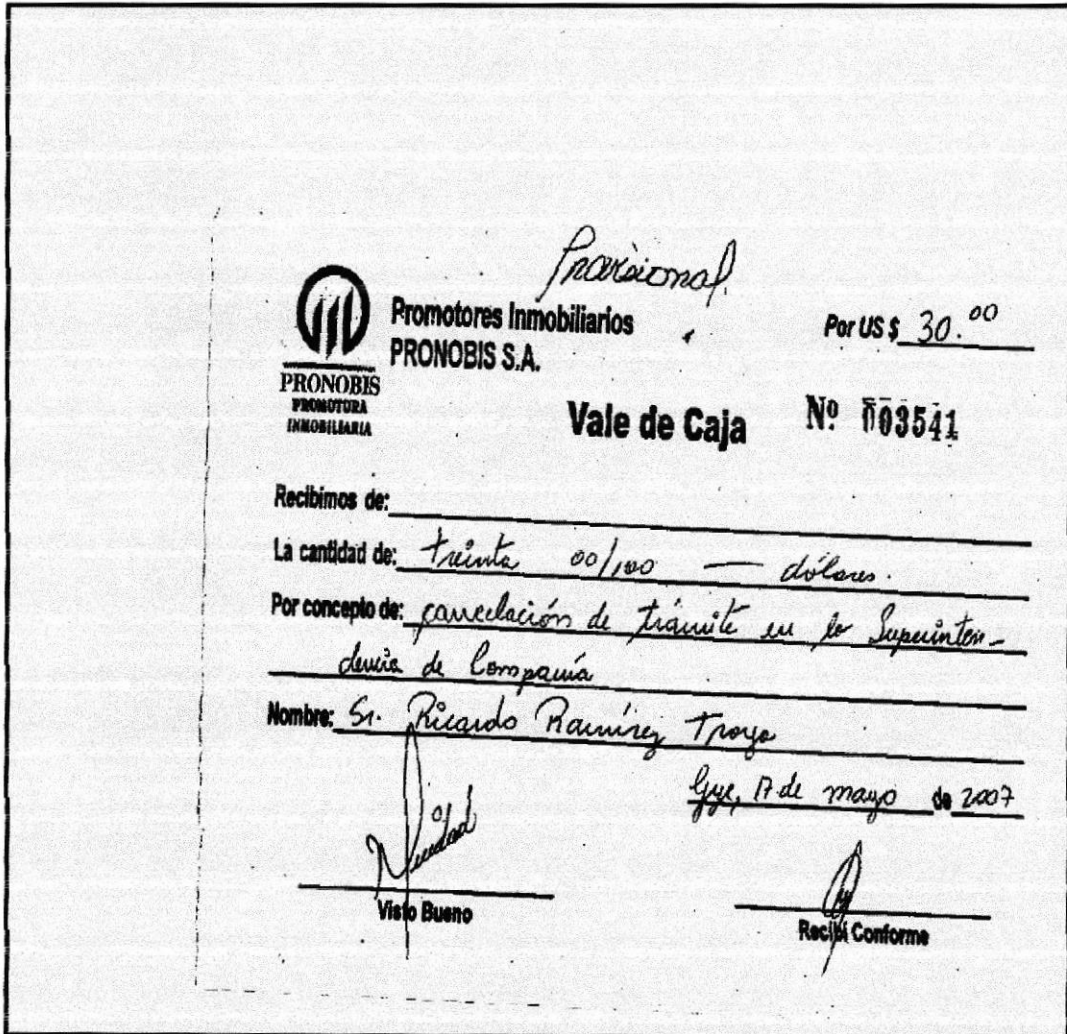 Provisional
Promotores Inmobiliarios
PRONOBIS S.A.
Por US $ 30.00
PRONOBIS
PROMOTORA
INMOBILIARIA
Vale de Caja Nº 003541
Recibimos de:
La cantidad de: treinta 00/100 — dólares.
Por concepto de: cancelación de trámite en la Superinten-
dencia de Compañía
Nombre: Sr. Ricardo Ramírez Troya
Gye, 17 de mayo de 2007
Visto Bueno
Recibí Conforme